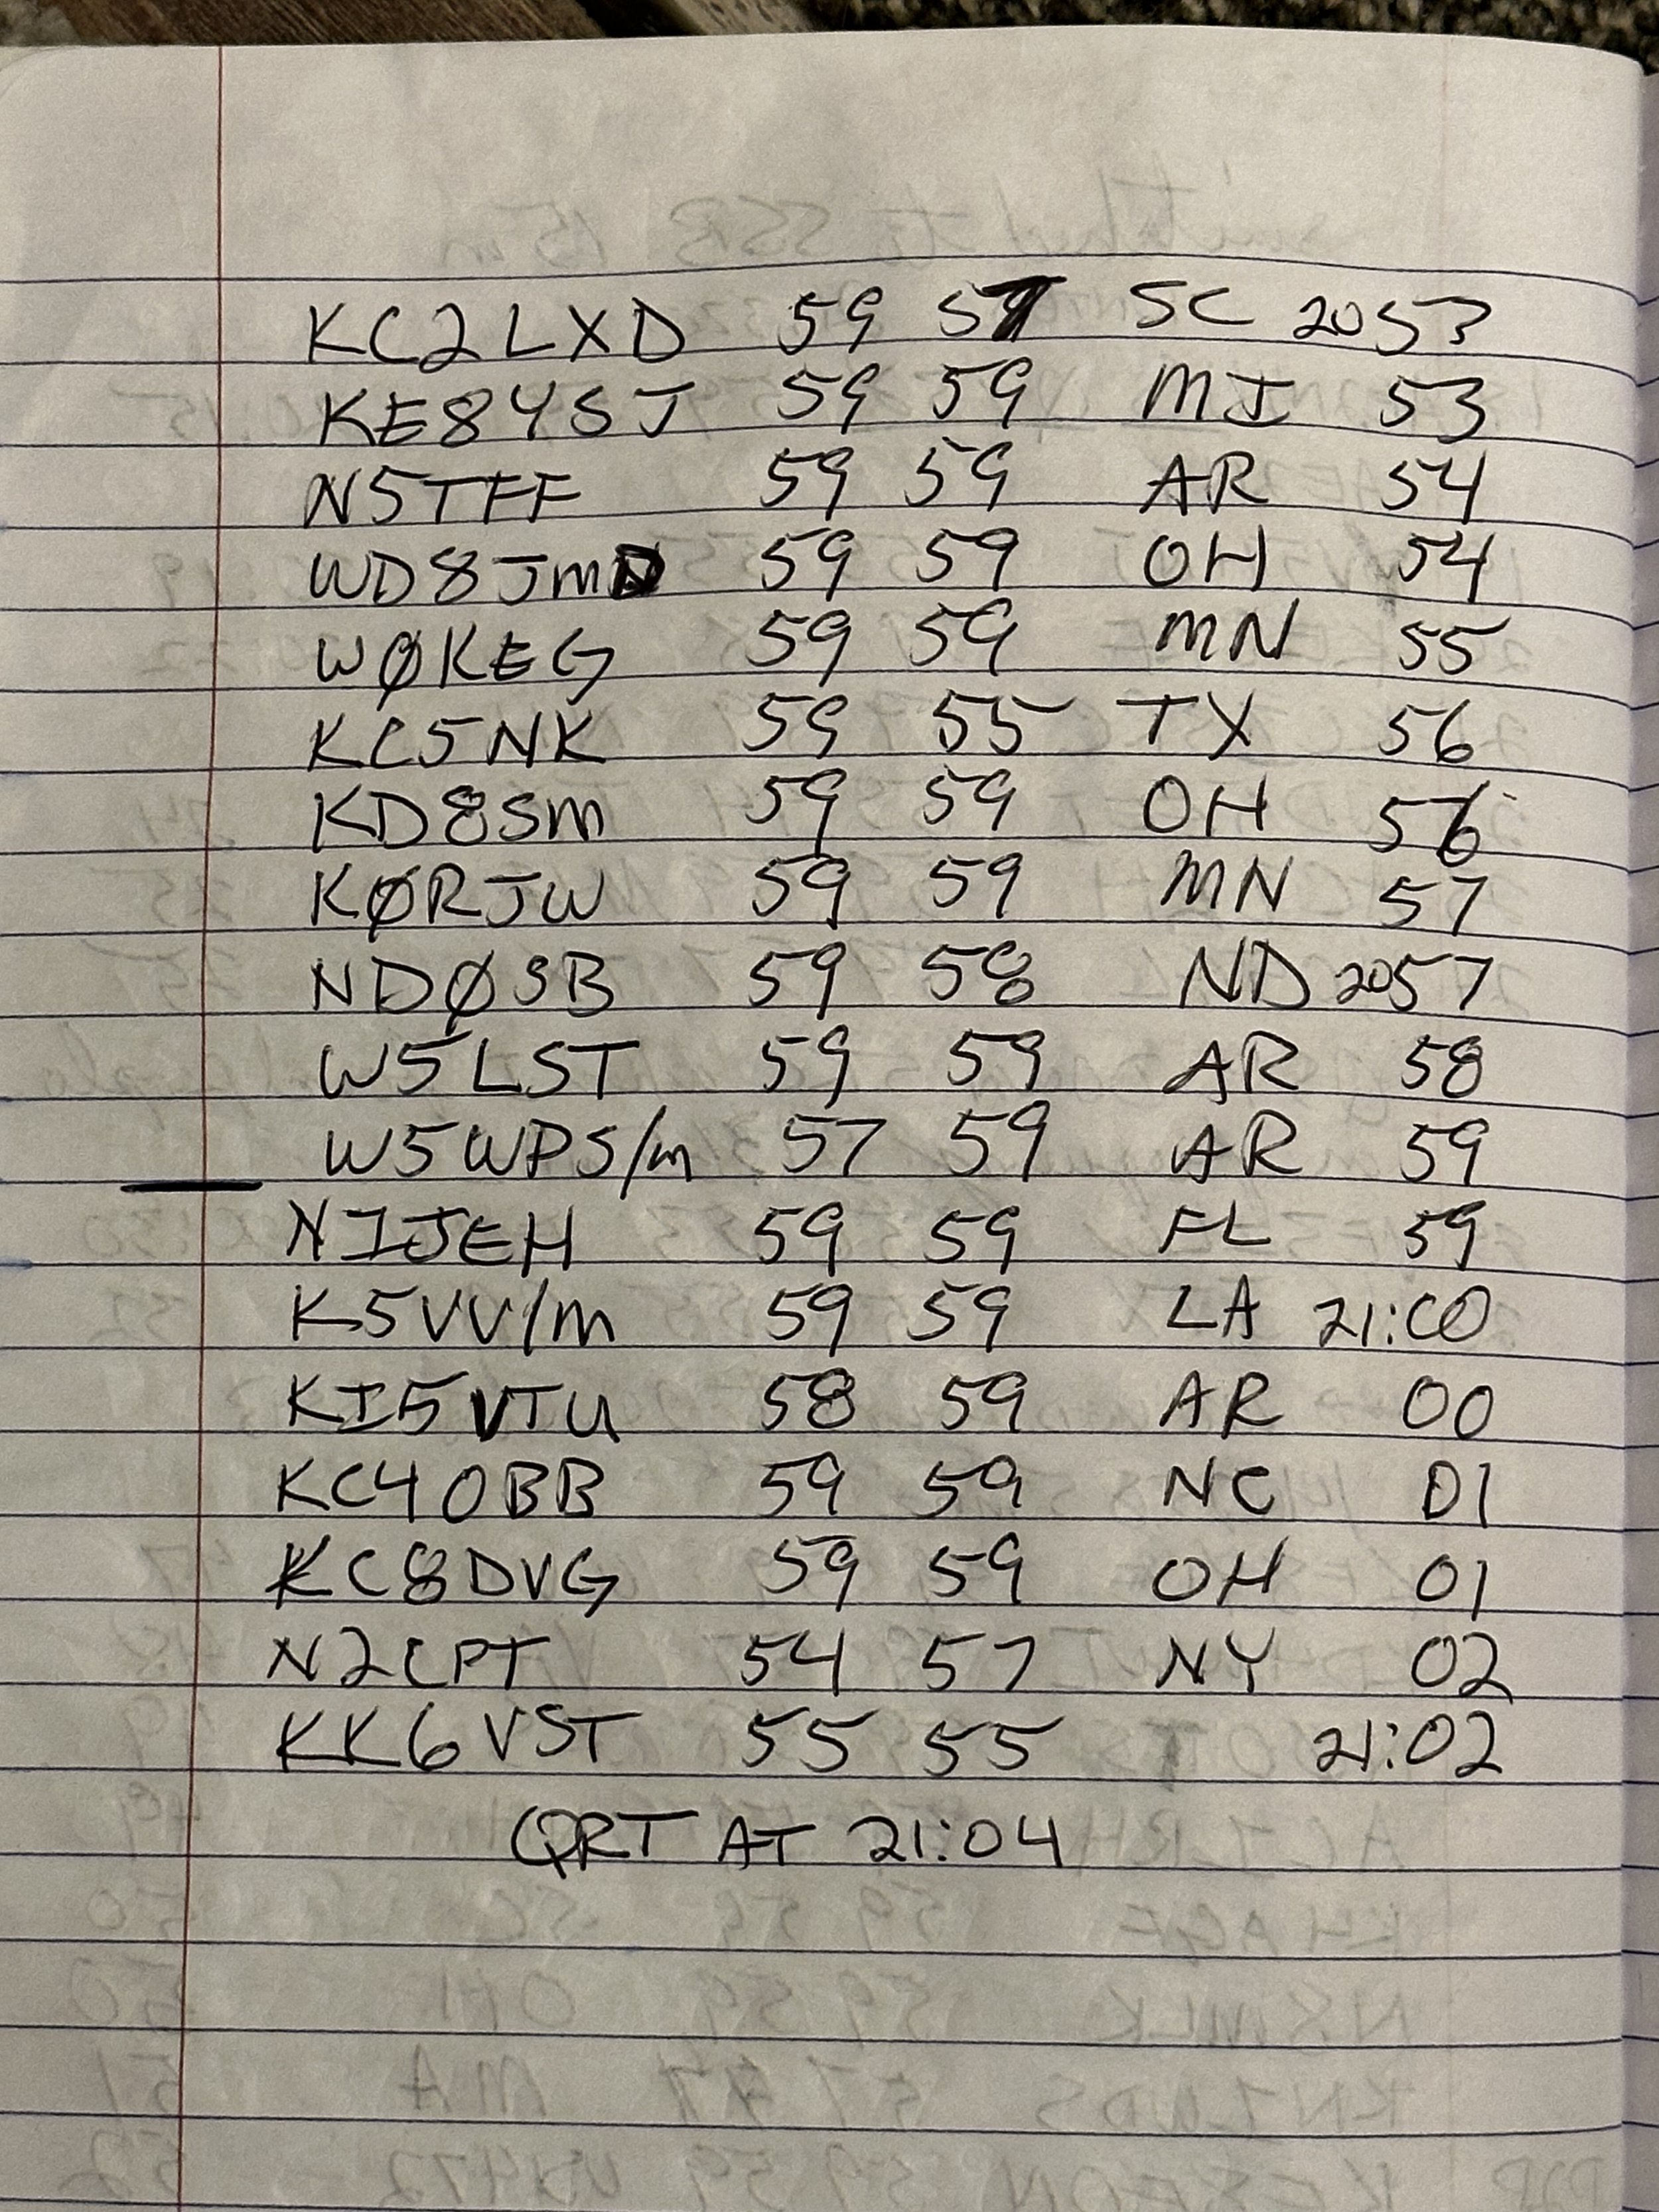 KC2LXD 59 57 SC 2053
KE8YSJ 59 59 MI 53
N5TFF 59 59 AR 54
WD8JMD 59 59 OH 54
WØKEG 59 59 MN 55
KC5NK 59 55 TX 56
KD8SM 59 59 OH 56
KØRJW 59 59 MN 57
NDØSB 59 58 ND 2057
W5LST 59 59 AR 58
W5WPS/m 57 59 AR 59
N1JEH 59 59 FL 59
K5VV/m 59 59 LA 21:00
KI5VTU 58 59 AR 00
KC4OBB 59 59 NC 01
KC8DVG 59 59 OH 01
N2CPT 54 57 NY 02
KK6VST 55 55 21:02
QRT AT 21:04